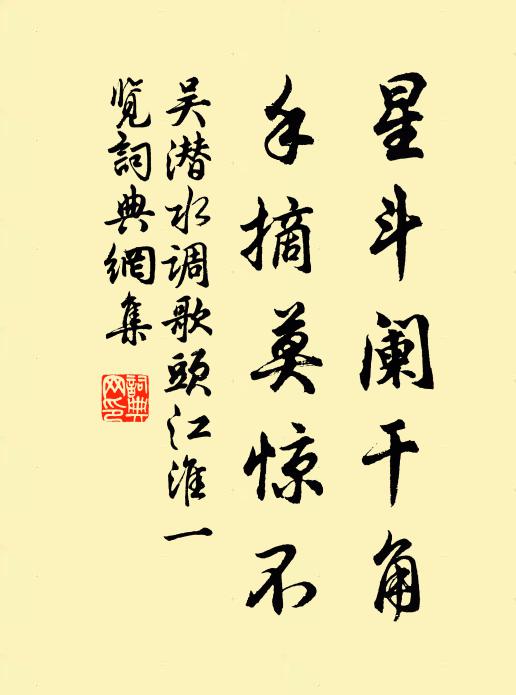 星斗阑干角
手摘莫惊不
吴潜水调歌頭江淮一
览詞典網集
詞典網印